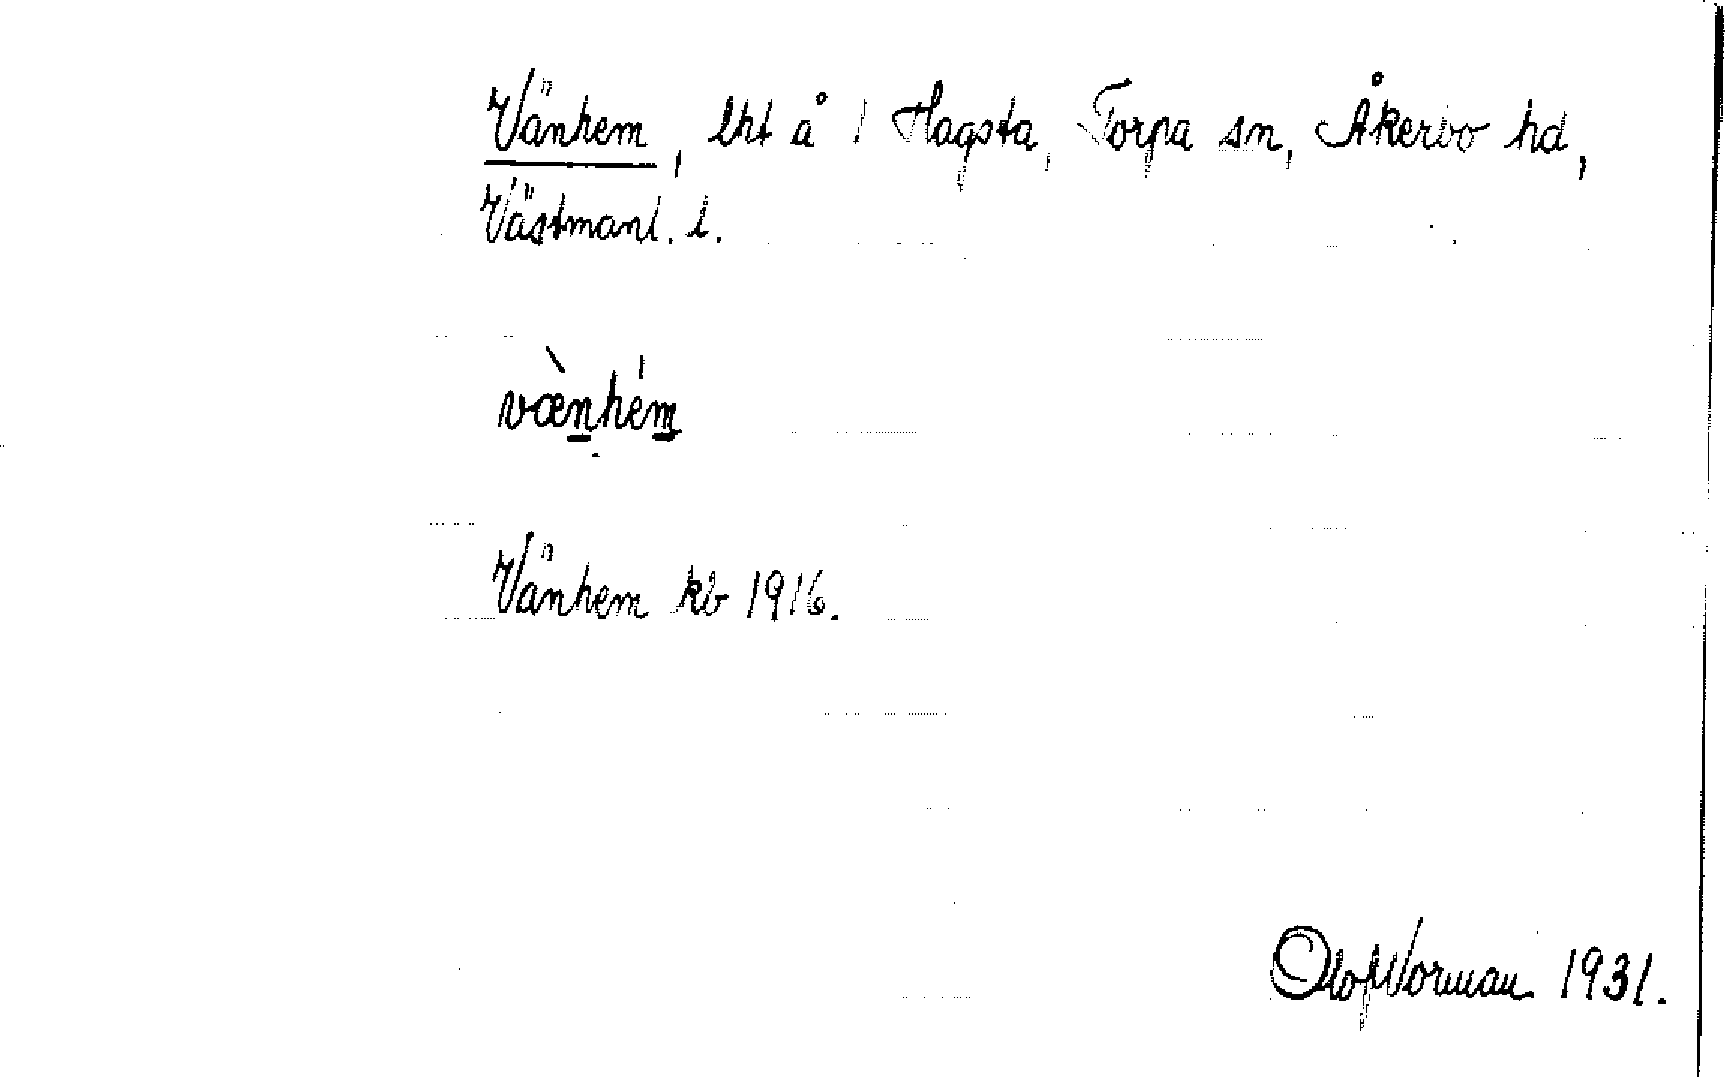 Vänhem, lht å 1 Hagsta, Torpa sn, Åkerbo hd,
Västmanl. l.
væ̀nhém
Vänhem kb 1916.
Olof Norman 1931.